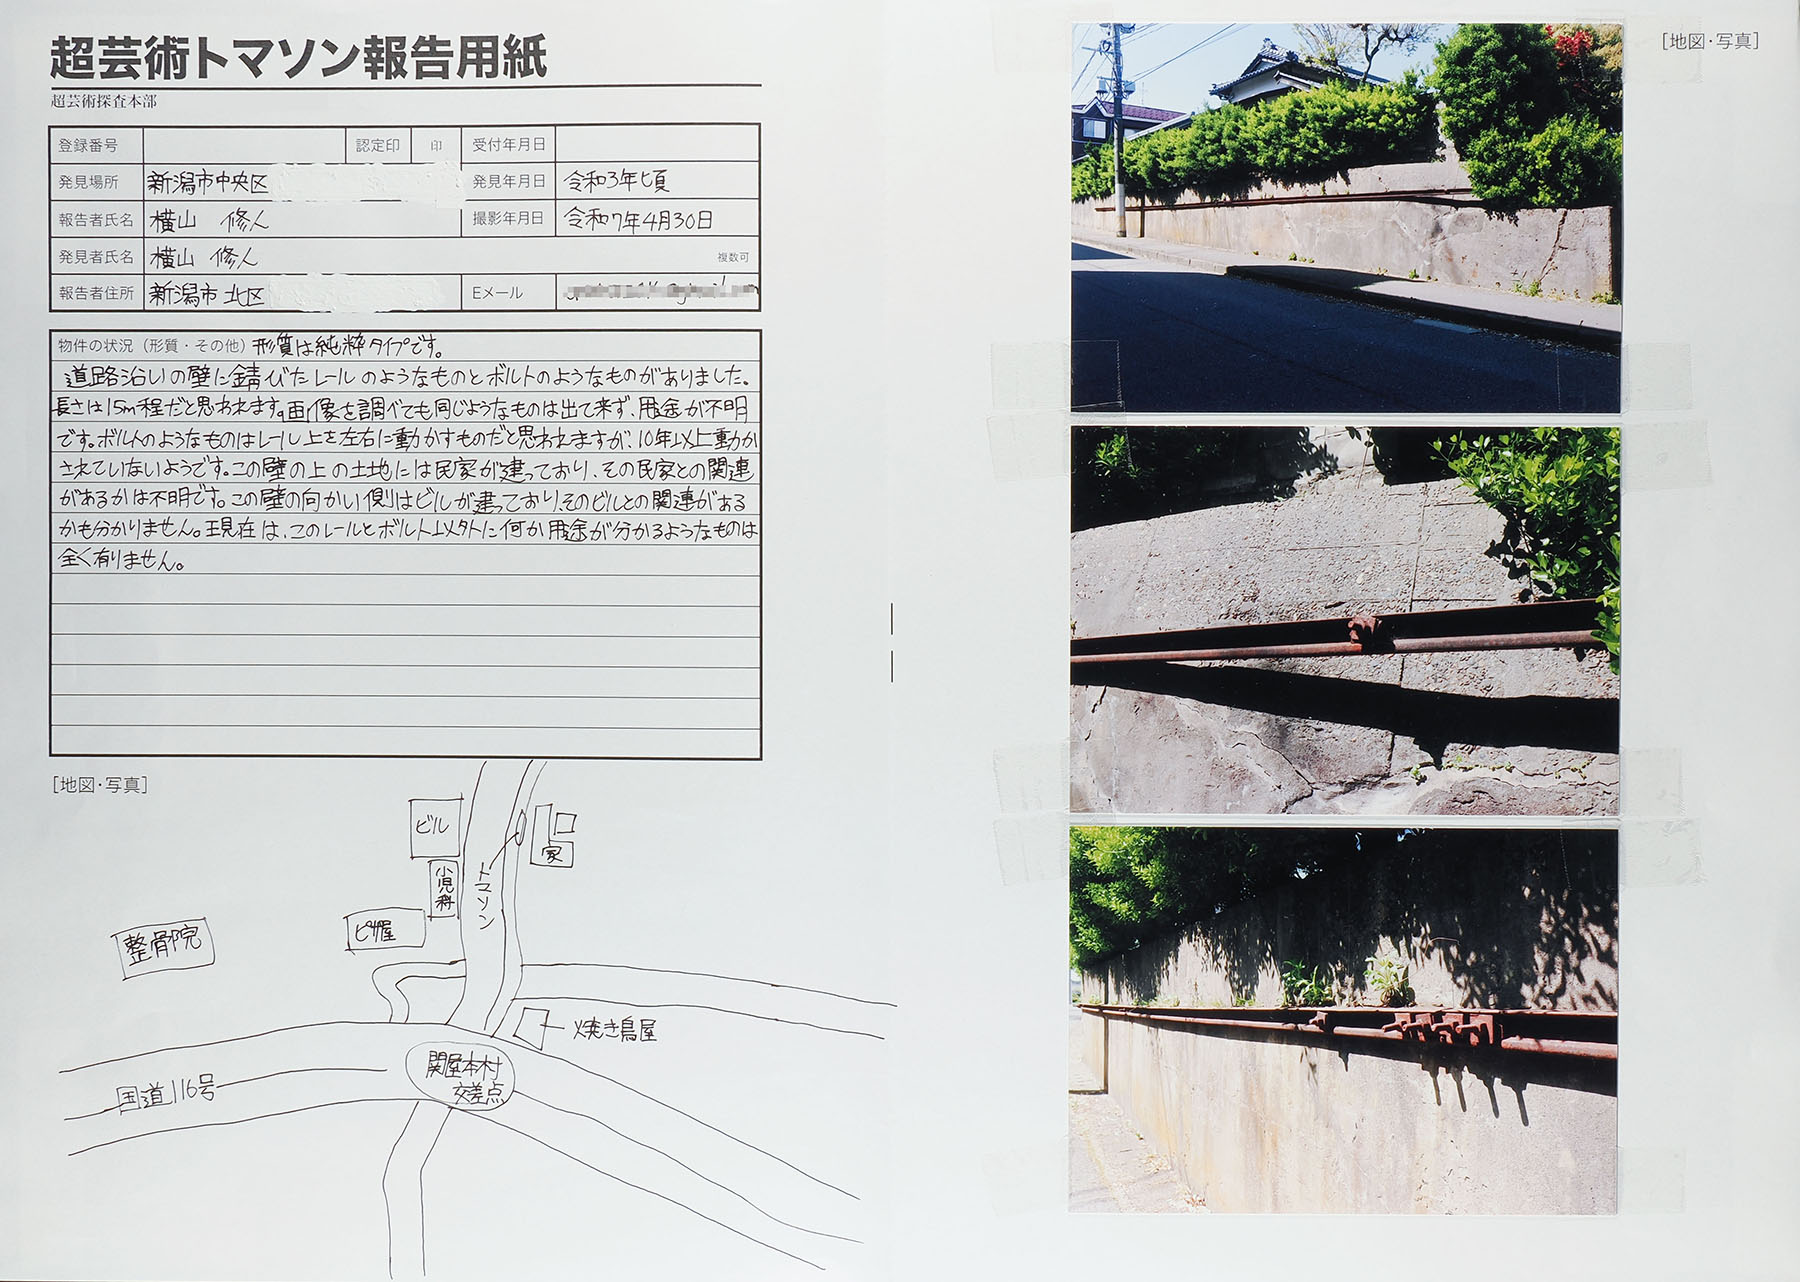 超芸術トマソン報告用紙
超芸術探査本部
登録番号 認定印 印 受付年月日
発見場所 新潟市中央区 発見年月日 令和3年頃
報告者氏名 横山 修人 撮影年月日 令和7年4月30日
発見者氏名 横山 修人 複数可
報告者住所 新潟市北区 Eメール
物件の状況（形質・その他）形質は純粋タイプです。
道路沿いの壁に錆びたレールのようなものとボルトのようなものがありました。
長さは15m程だと思われます。画像を調べても同じようなものは出て来ず、用途が不明
です。ボルトのようなものはレール上を左右に動かすものだと思われますが、10年以上動か
されていないようです。この壁の上の土地には民家が建っており、その民家との関連
があるかは不明です。この壁の向かい側はビルが建っており、そのビルとの関連がある
かも分かりません。現在は、このレールとボルト以外に何か用途が分かるようなものは
全く有りません。
［地図・写真］
ビル
家
小児科
トマソン
ピザ屋
整骨院
焼き鳥屋
関屋本村
交差点
国道116号
［地図・写真］